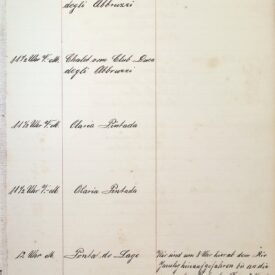 degli Abbruzzi
11½ Uhr V.-M. Chalet vom Club Duca
degli Abbruzzi
11½ Uhr V.-M. Olaria Pintada
11½ Uhr V.-M. Olaria Pintada
12 Uhr M Ponta do Lage Wir sind um 8 Uhr hier ab dem Rio
hinaufgefahren bis an die